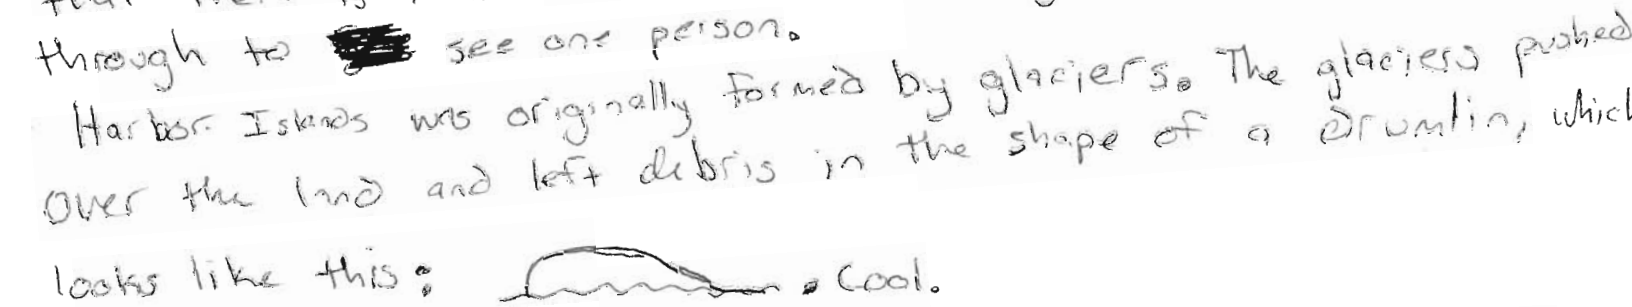 through to see one person.
Harbor Islands was originally formed by glaciers. The glaciers pushed
over the land and left debris in the shape of a drumlin, which
looks like this: . Cool.